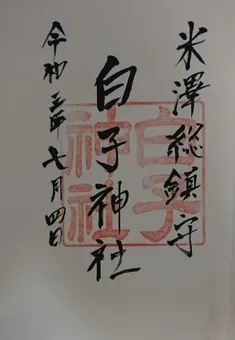 米澤総鎮守
白子神社
令和三年七月四日
白子神社